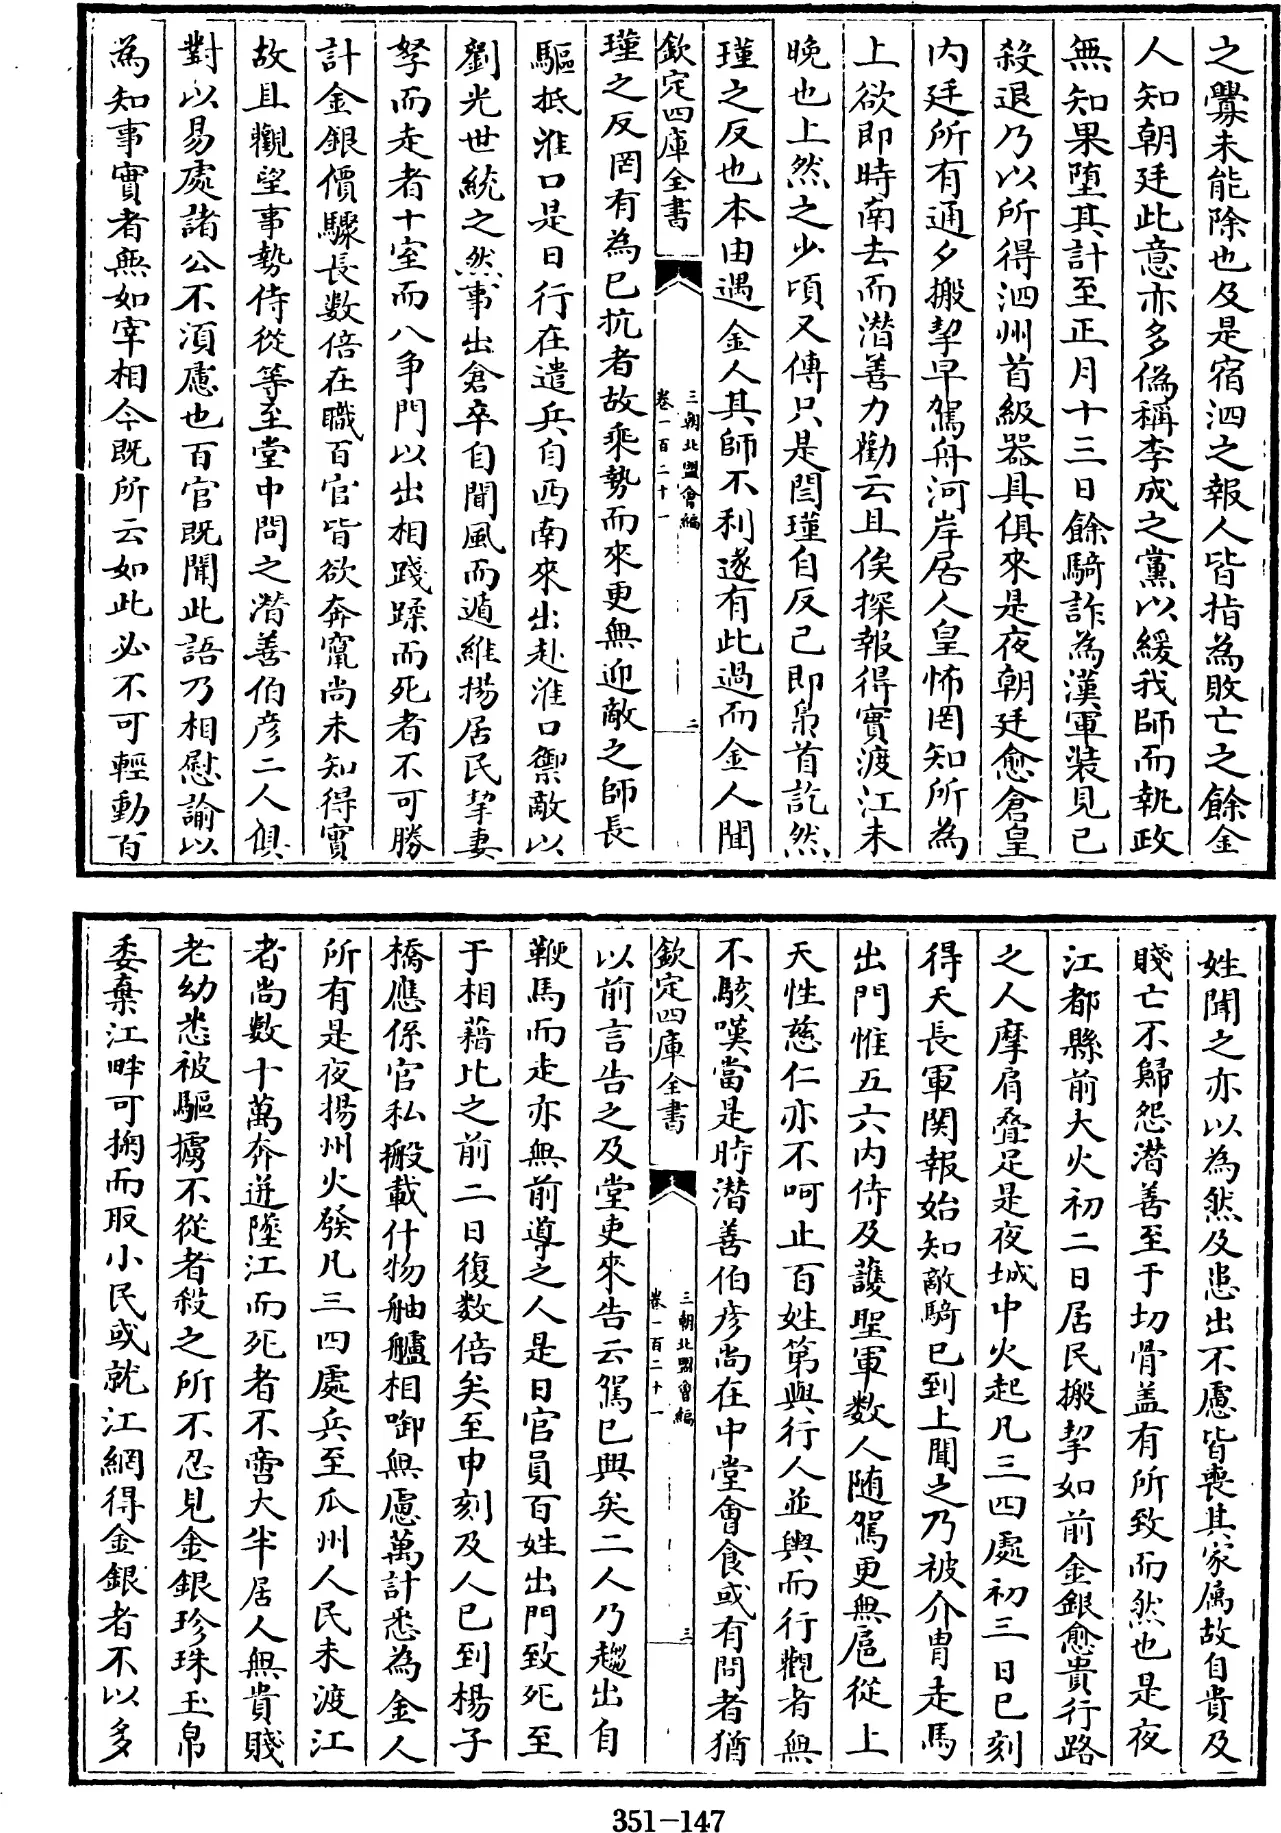 之釁未能除也及是宿泗之報人皆指為敗亡之餘金
人知朝廷此意亦多偽稱李成之黨以緩我師而執政
無知果墮其計至正月十三日餘騎詐為漢軍裝見已
殺退乃以所得泗州首級器具俱來是夜朝廷愈倉皇
内廷所有通夕搬挈早駕舟河岸居人皇怖罔知所為
上欲即時南去而潛善力勸云且俟探報得實渡江未
晚也上然之少頃又傳只是閆瑾自反已即梟首訖然
瑾之反也本由遇金人其師不利遂有此過而金人聞
欽定四庫全書
三朝北盟會編
卷一百二十一
二
瑾之反罔有為已抗者故乘勢而來更無迎敵之師長
驅抵淮口是日行在遣兵自西南來出赴淮口禦敵以
劉光世統之然事出倉卒自聞風而遁維揚居民挈妻
孥而走者十室而八争門以出相踐蹂而死者不可勝
計金銀價驟長數倍在職百官皆欲奔竄尚未知得實
故且觀望事勢侍從等至堂中問之潛善伯彦二人俱
對以易處諸公不須慮也百官既聞此語乃相慰諭以
為知事實者無如宰相今既所云如此必不可輕動百
姓聞之亦以為然及患出不慮皆喪其家属故自貴及
賤亡不歸怨潛善至于切骨盖有所致而然也是夜
江都縣前大火初二日居民搬挈如前金銀愈貴行路
之人摩肩疊足是夜城中火起凡三四處初三日巳刻
得天長軍関報始知敵騎已到上聞之乃被介胄走馬
出門惟五六内侍及護聖軍數人随駕更無扈從上
天性慈仁亦不呵止百姓第與行人並輿而行觀者無
不駭嘆當是時潛善伯彦尚在中堂會食或有問者猶
欽定四庫全書
三朝北盟會編
卷一百二十一
三
以前言告之及堂吏來告云駕已興矣二人乃趨出自
鞭馬而走亦無前導之人是日官員百姓出門致死至
于相藉比之前二日復数倍矣至申刻及人已到楊子
橋應係官私搬載什物舳艫相啣無慮萬計悉為金人
所有是夜揚州火發凡三四處兵至瓜州人民未渡江
者尚數十萬奔迸墜江而死者不啻大半居人無貴賤
老幼悉被驅擄不從者殺之所不忍見金銀珍珠玉帛
委棄江畔可掬而取小民或就江網得金銀者不以多
351-147